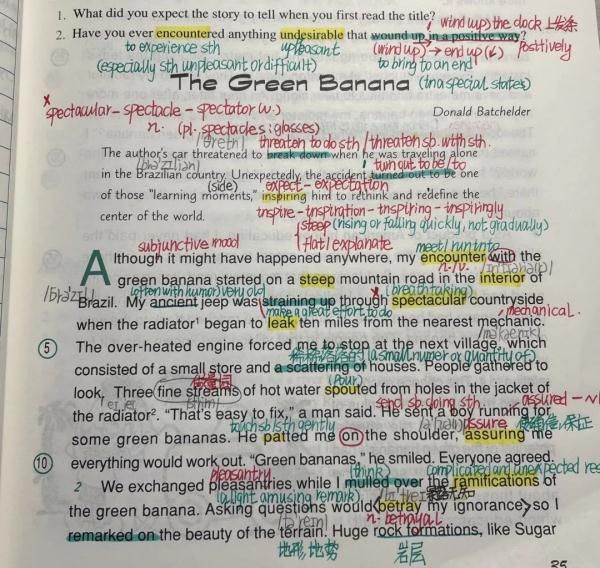 1. What did you expect the story to tell when you first read the title?
wind up
the clock 上发条
2. Have you ever encountered anything undesirable that wound up in a positive way?
to experience sth
unpleasant
(wind up) → end up
positively
(especially sth unpleasant or difficult)
to bring to an end
The Green Banana
(in a special states)
Donald Batchelder
spectacular – spectacle – spectator
n. (pl. spectacles: glasses)
threaten to do sth / threaten sb. with sth.
The author's car threatened to break down when he was traveling alone
turn out to be / to
in the Brazilian country. Unexpectedly, the accident turned out to be one
(side)
expect – expectation
of those "learning moments," inspiring him to rethink and redefine the
inspire – inspiration – inspiring – inspiringly
center of the world.
steep (rising or falling quickly, not gradually)
subjunctive mood
flat / explanate
meet / run into
n./v.
Although it might have happened anywhere, my encounter with the
green banana started on a steep mountain road in the interior of
(often with humor) very old
(breath taking)
Brazil. My ancient jeep was straining up through spectacular countryside
(make a great effort to do
mechanical.
when the radiator¹ began to leak ten miles from the nearest mechanic.
5 The over-heated engine forced me to stop at the next village, which
(a small numer or quantity of)
consisted of a small store and a scattering of houses. People gathered to
(pour)
look. Three fine streams of hot water spouted from holes in the jacket of
send sb doing sth
assured
the radiator². "That's easy to fix," a man said. He sent a boy running for
touch sb/sth gently
assure
保证
some green bananas. He patted me on the shoulder, assuring me
10 everything would work out. "Green bananas," he smiled. Everyone agreed.
pleasantry
(think)
complicated and unexpected res
2 We exchanged pleasantries while I mulled over the ramifications of
(a light amusing remark)
the green banana. Asking questions would <betray my ignorance> so I
n. betrayal
remarked on the beauty of the terrain. Huge rock formations, like Sugar
地形, 地势
岩层
35